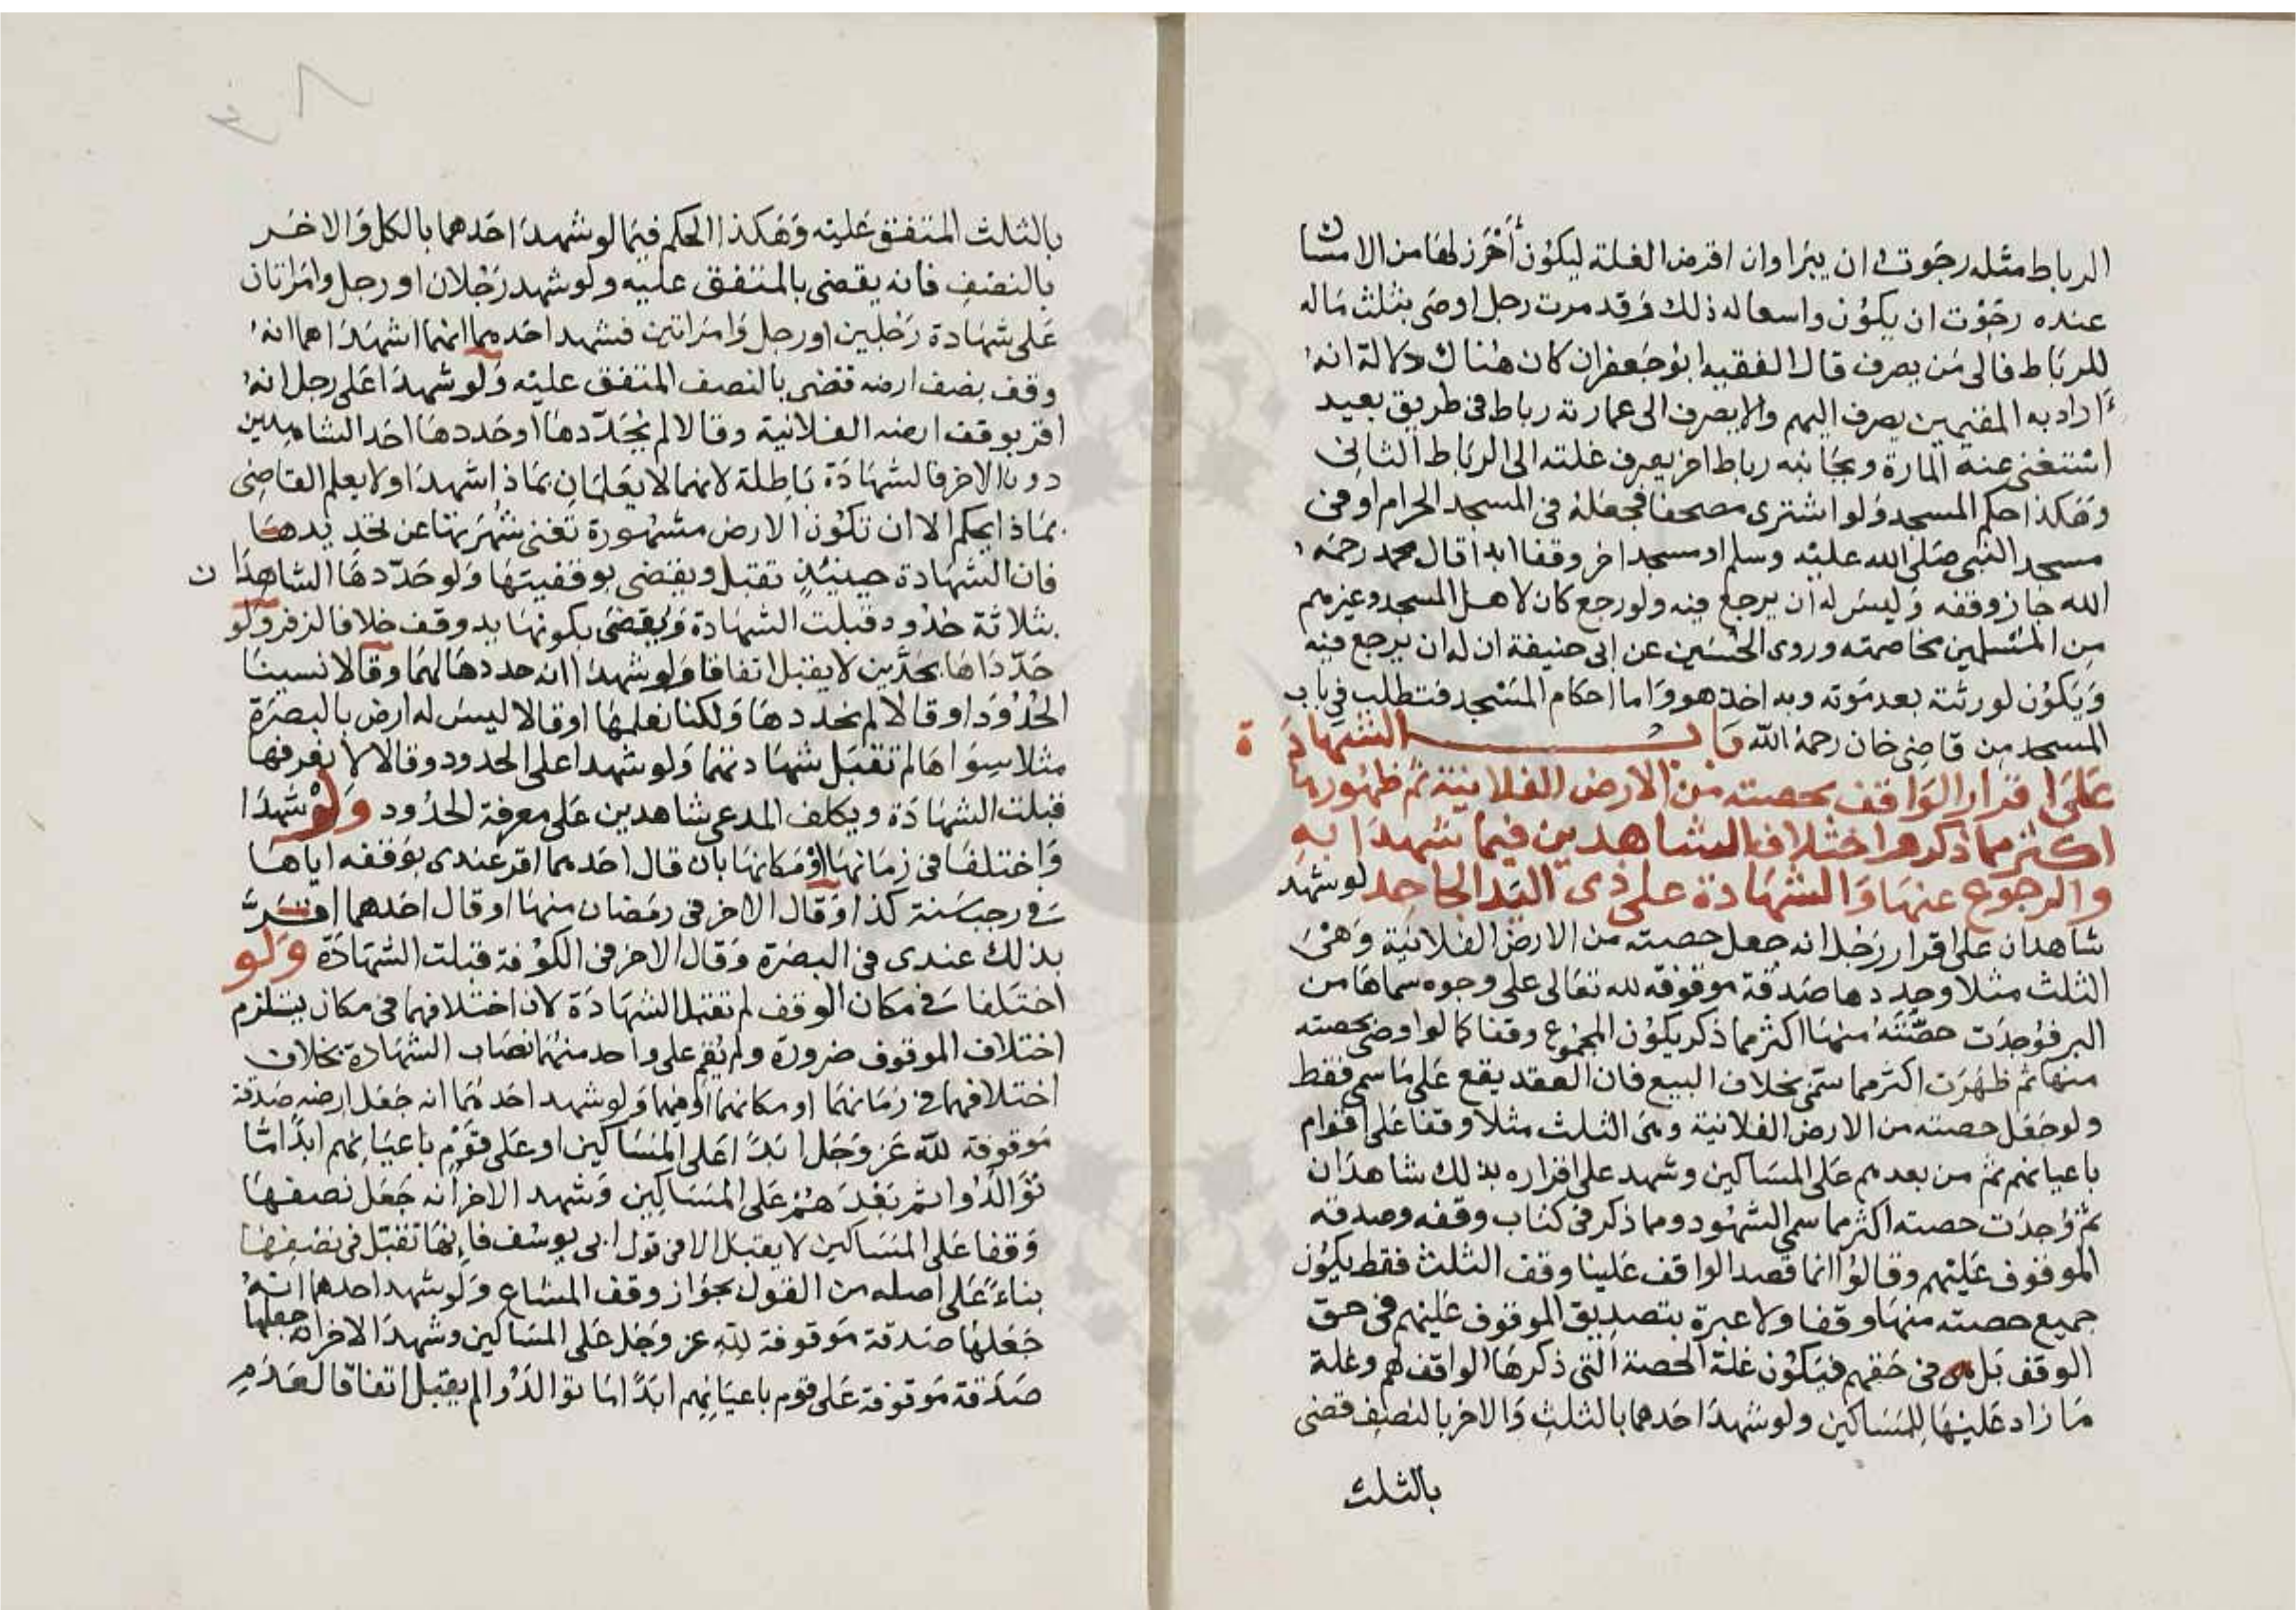 الرباط مثله رجوت له ان يبرا وان اقرض الغلة ليكون أحرز لها من الامساك
عنده رجوت ان يكون واسعا له ذلك وقد مرت رجل اوصى بثلث ماله
للرباط فالى من يصرف قال الفقيه ابو جعفر ان كان هناك دلالة انه
أراد به المقيمين يصرف اليهم والا يصرف الى عمارته رباط في طريق بعيد
استغنى عنه المارة وبجانبه رباط اخر يصرف غلته الى الرباط الثاني
وهكذا حكم المسجد ولو اشترى مصحفا فجعله في المسجد الحرام او في
مسجد النبي صلى الله عليه وسلم او مسجد اخر وقفا ابدا قال محمد رحمه
الله جاز وقفه وليس له ان يرجع فيه ولو رجع كان لاهل المسجد وغيرهم
من المسلمين مخاصمته وروى الحسن عن ابى حنيفة ان له ان يرجع فيه
ويكون لورثته بعد موته وبه اخذ هو واما احكام المسجد فتطلب في باب
المسجد من قاضى خان رحمه الله باب الشهادة
على اقرار الواقف بحصته من الارض الفلانية ثم ظهورها
اكثر مما ذكر واختلاف الشاهدين فيما شهدا به
والرجوع عنها والشهادة على ذى اليد الجاحد لو شهد
شاهدان على اقرار رجل انه جعل حصته من الارض الفلانية وهى
الثلث مثلا وحددها صدقة موقوفة لله تعالى على وجوه سماها من
البر فوجدت حصته منها اكثر مما ذكر يكون المجموع وقفا كما لو اوصى بحصته
منها ثم ظهرت اكثر مما سمى بخلاف البيع فان العقد يقع على ما سمى فقط
ولو جعل حصته من الارض الفلانية وهى الثلث مثلا وقفا على اقوام
باعيانهم ثم من بعدهم على المساكين وشهد على اقراره بذلك شاهدان
ثم وجدت حصته اكثر مما سمى الشهود ومما ذكر في كتاب وقفه وصدقه
الموقوف عليهم وقالوا انما قصد الواقف علينا وقف الثلث فقط يكون
جميع حصته منها وقفا ولا عبرة بتصديق الموقوف عليهم في حق
الوقف بل في حقهم فيكون غلة الحصة التى ذكرها الواقف لهم وغلة
ما زاد عليها للمساكين ولو شهد احدهما بالثلث والاخر بالنصف قضى
بالثلث
بالثلث المتفق عليه وهكذا الحكم فيما لو شهد احدهما بالكل والاخر
بالنصف فانه يقضى بالمتفق عليه ولو شهد رجلان او رجل وامراتان
على شهادة رجلين او رجل وامراتين فشهد احدهما انهما اشهداهما انه
وقف نصف ارضه فقضى بالنصف المتفق عليه ولو شهدا على رجل انه
اقر بوقف ارضه الفلانية وقالا لم يحددها او حددها احد الشاهدين
دون الاخر فالشهادة باطلة لانهما لا يعلمان بماذا شهدا ولا يعلم القاضى
بماذا يحكم الا ان تكون الارض مشهورة تغنى شهرتها عن تحديدها
فان الشهادة حينيذ تقبل ويقضى بوقفيتها ولو حددها الشاهدان
بثلاثة حدود قبلت الشهادة ويقضى بكونها به وقف خلافا لزفر ولو
حدداها بحدين لا يقبل اتفاقا ولو شهدا انه حددها لهما وقالا نسينا
الحدود او قالا لم يحددها ولكنا نعلمها او قالا ليس له ارض بالبصرة
مثلا سواها لم تقبل شهادتهما ولو شهدا على الحدود وقالا لا نعرفها
قبلت الشهادة ويكلف المدعى شاهدين على معرفة الحدود ولو شهدا
واختلفا في زمانها او مكانها بان قال احدهما اقر عندى بوقفه اياها
في رجب سنة كذا وقال الاخر في رمضان منها او قال احدهما اقر
بذلك عندى في البصرة وقال الاخر في الكوفة قبلت الشهادة ولو
اختلفا في مكان الوقف لم تقبل الشهادة لان اختلافهما في مكان يستلزم
اختلاف الموقوف ضرورة ولم يقم على واحد منهما نصاب الشهادة بخلاف
اختلافهما في زمانهما او مكانهما او فيهما ولو شهد احدهما انه جعل ارضه صدقة
موقوفة لله عز وجل ابدا على المساكين او على قوم باعيانهم ابدا ما
توالدوا ثم بعدهم على المساكين وشهد الاخر انه جعل نصفها
وقفا على المساكين لا يقبل الا في قول ابى يوسف فانها تقبل في نصفها
بناء على اصله من القول بجواز وقف المشاع ولو شهد احدهما انه
جعلها صدقة موقوفة لله عز وجل على المساكين وشهد الاخر انه جعلها
صدقة موقوفة على قوم باعيانهم ابدا ما توالدوا لم يقبل اتفاقا لعدم